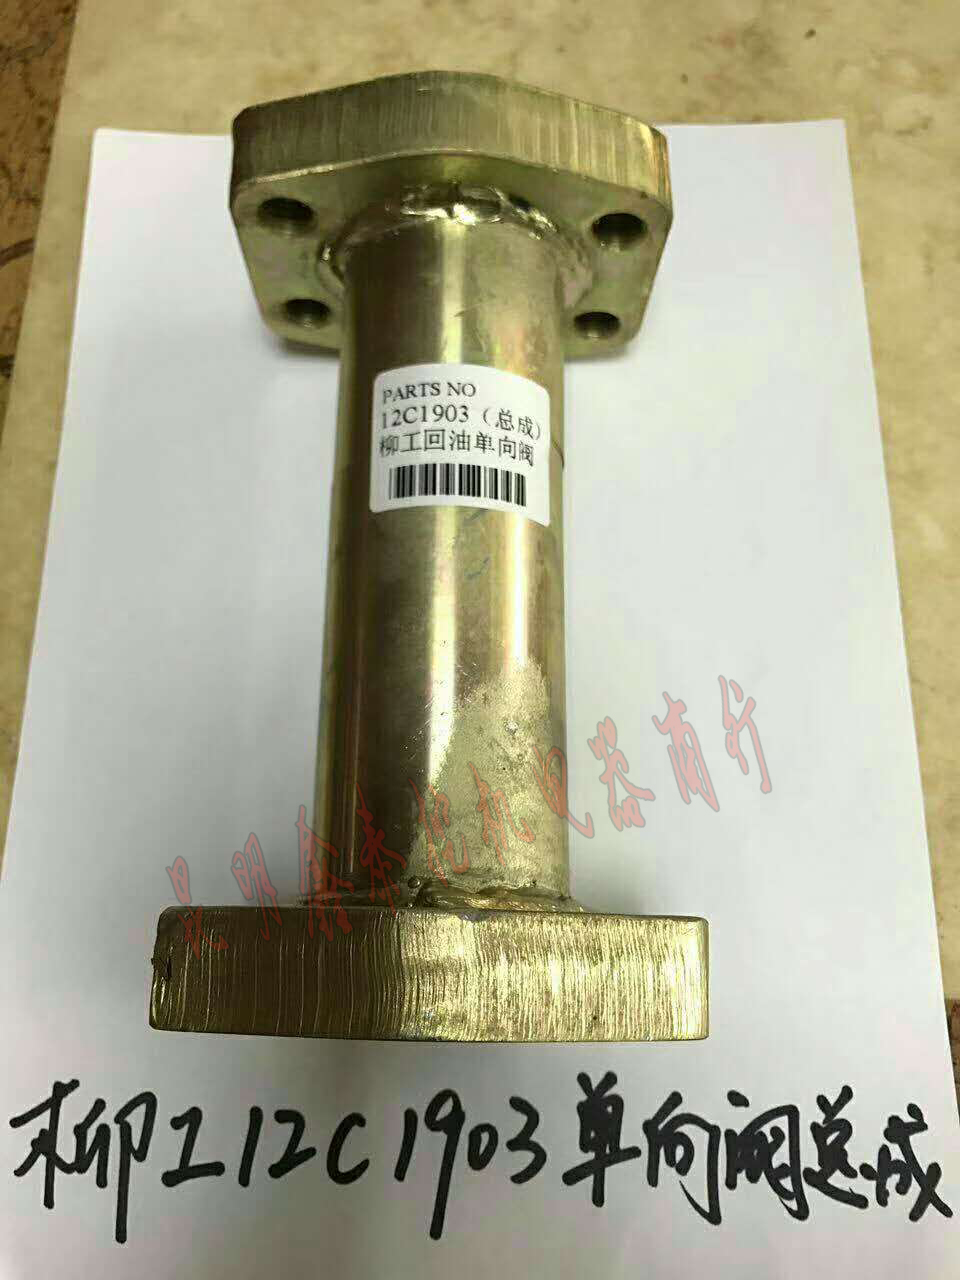 PARTS NO
12C1903（总成）
柳工回油单向阀
昆明鑫泰挖机电器商行
柳工12C1903单向阀总成